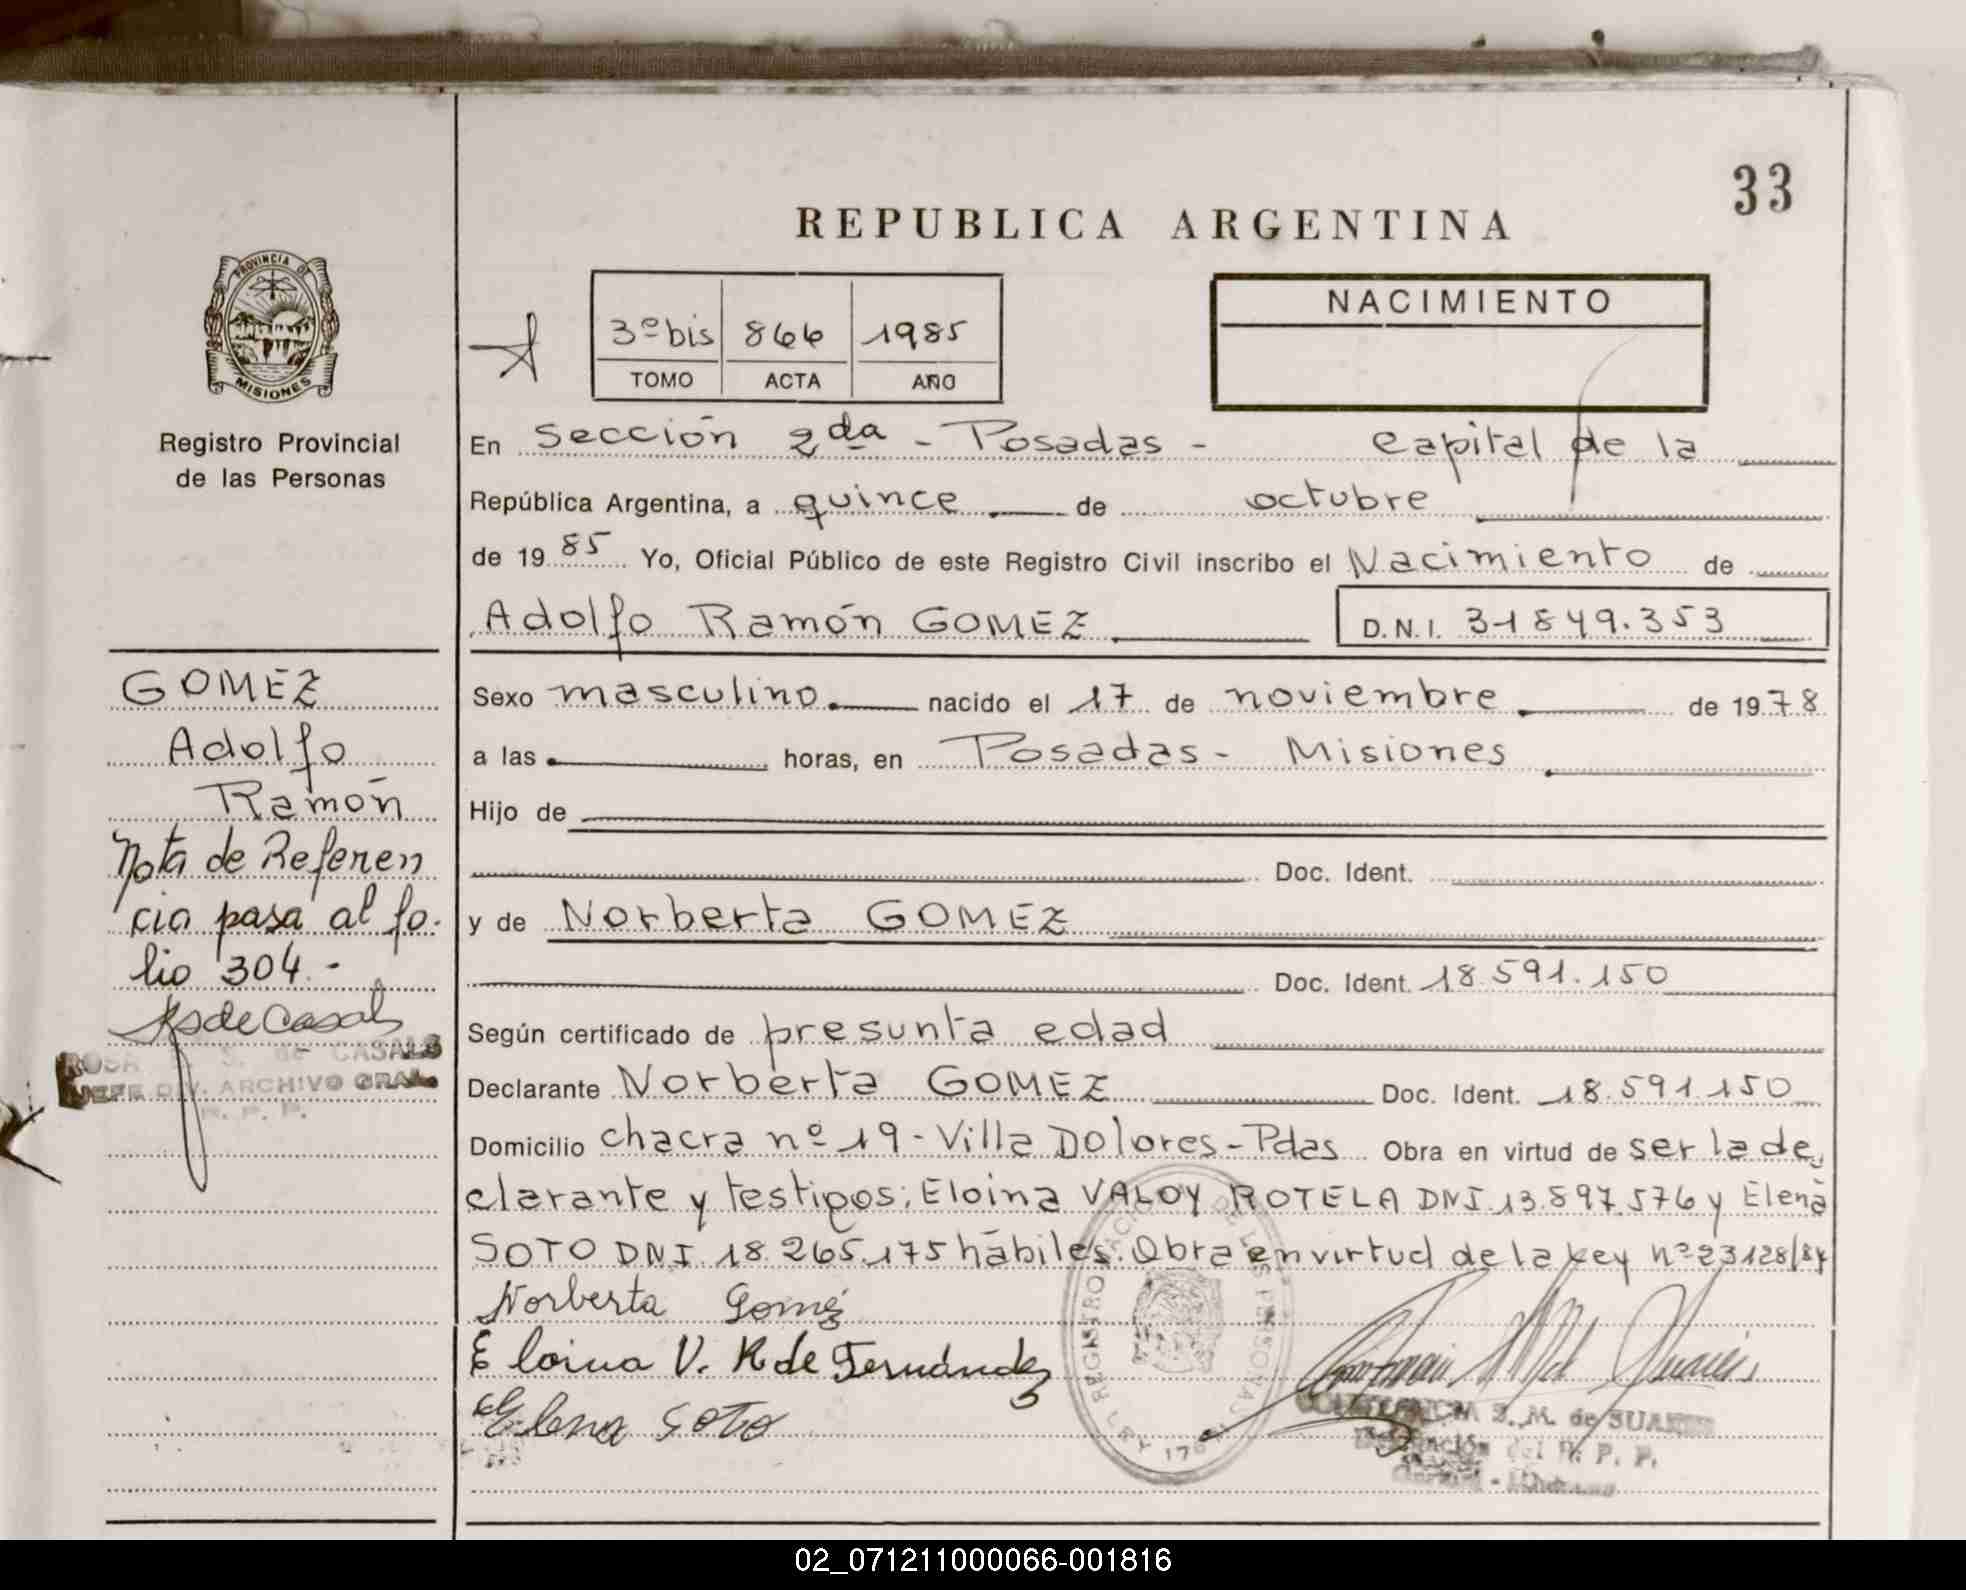 33
REPUBLICA ARGENTINA
PROVINCIA DE
MISIONES
Registro Provincial
de las Personas
3º bis 866 1985
TOMO ACTA AÑO
NACIMIENTO
En Sección 2da - Posadas - capital de la
República Argentina, a quince de octubre
de 1985 Yo, Oficial Público de este Registro Civil inscribo el Nacimiento de
Adolfo Ramón GOMEZ D.N.I. 31849.353
GOMEZ
Adolfo
Ramón
Nota de Referen
cia pasa al fo-
lio 304.-
RsdeCasals
S. de CASALS
JEFE DIV. ARCHIVO GRAL.
R. P. P.
Sexo masculino nacido el 17 de noviembre de 1978
a las horas, en Posadas - Misiones
Hijo de
Doc. Ident.
y de Norberta GOMEZ
Doc. Ident. 18.591.150
Según certificado de presunta edad
Declarante Norberta GOMEZ Doc. Ident. 18.591.150
Domicilio chacra nº 19 - Villa Dolores - Pdas Obra en virtud de ser la de
clarante y testigos: Eloina VALOY ROTELA DNI 13.897.576 y Elena
SOTO DNI 18.265.175 hábiles. Obra en virtud de la Ley nº 23128/84
Norberta Gomez
Eloina V. R de Fernández
Elena Soto
S. M. de SUAREZ
del R. P. P.
02_071211000066-001816